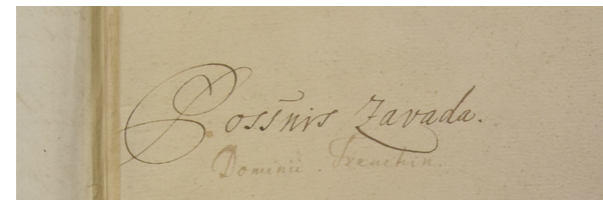 Possn̄is Zavada.
Dominii Trenchin.